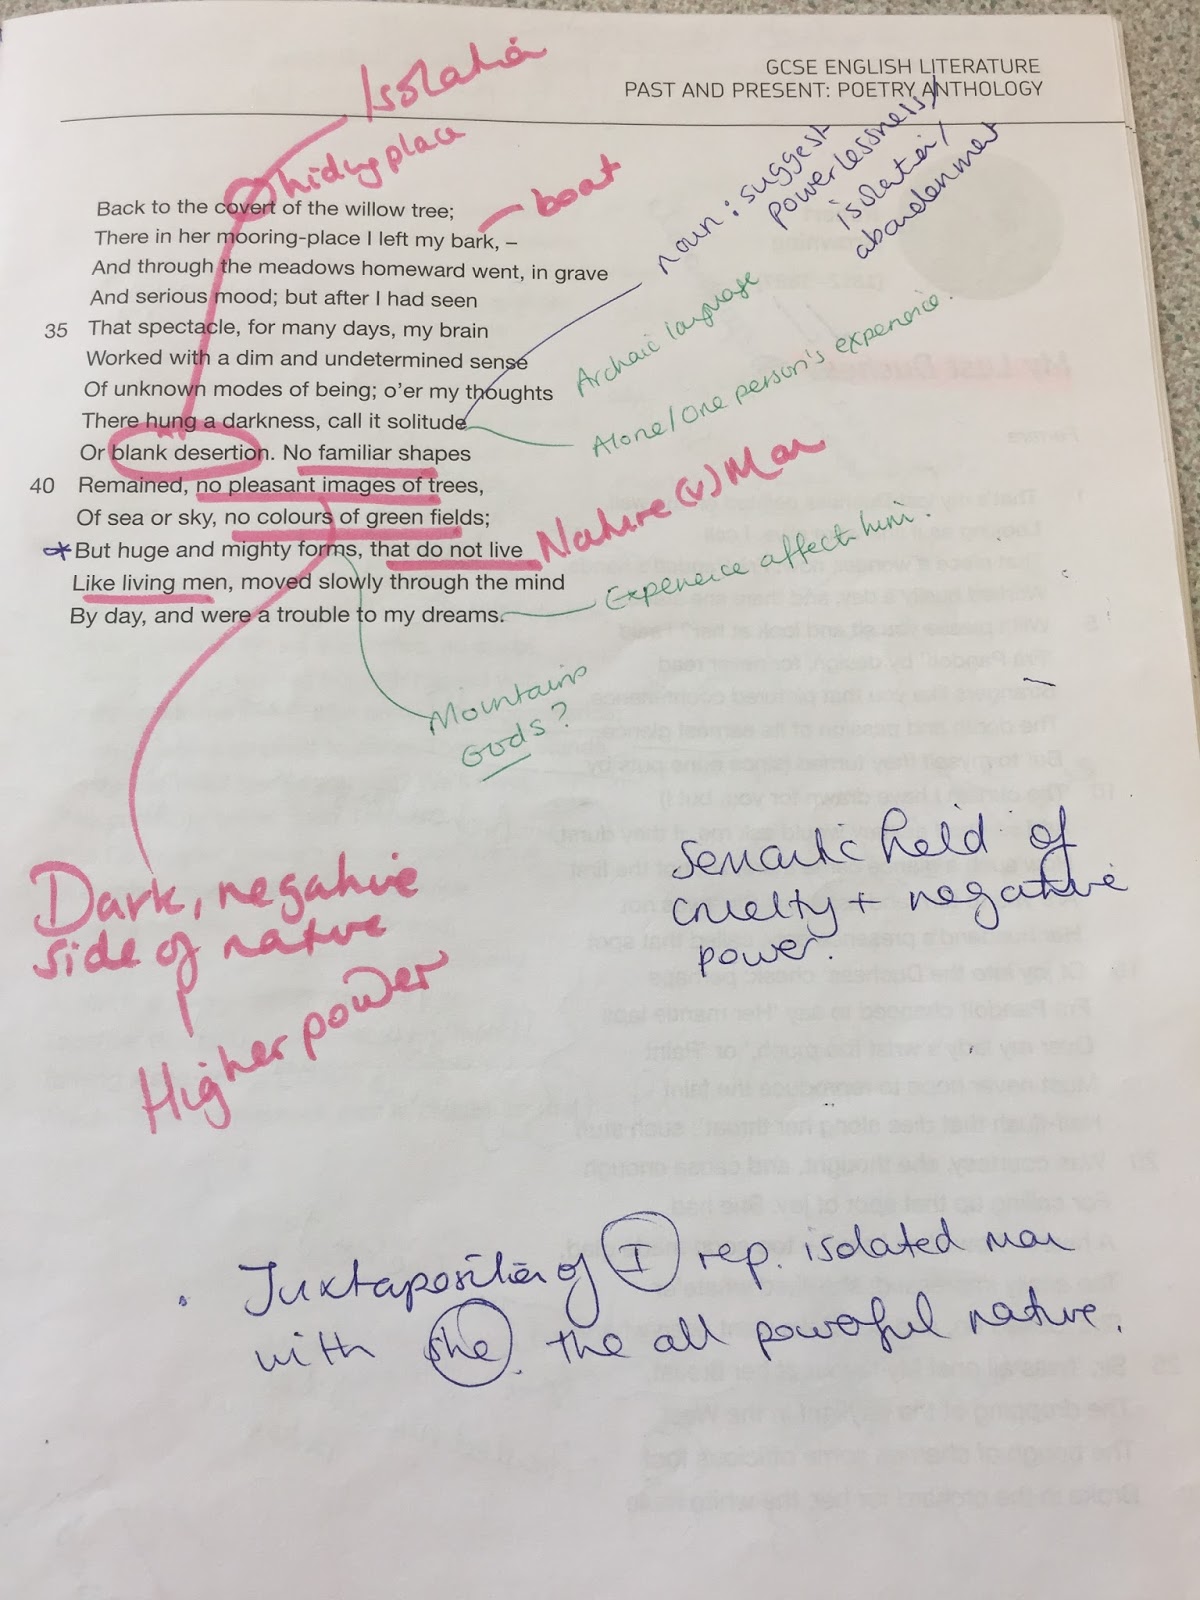 GCSE ENGLISH LITERATURE
PAST AND PRESENT: POETRY ANTHOLOGY
Isolation
hiding place
boat
noun: suggest
powerlessness/
isolation/
abandonment
Back to the covert of the willow tree;
There in her mooring-place I left my bark, –
And through the meadows homeward went, in grave
And serious mood; but after I had seen
35 That spectacle, for many days, my brain
Worked with a dim and undetermined sense
Of unknown modes of being; o'er my thoughts
There hung a darkness, call it solitude
Or blank desertion. No familiar shapes
40 Remained, no pleasant images of trees,
Of sea or sky, no colours of green fields;
* But huge and mighty forms, that do not live
Like living men, moved slowly through the mind
By day, and were a trouble to my dreams.
Archaic language
Alone/One person's experience.
Nature (v) Man
Experience affect him.
Mountains
Gods?
Semantic field of
cruelty + negative
power.
Dark, negative
side of nature
Higher power
. Juxtaposition of I rep. isolated man
with she. the all powerful nature.